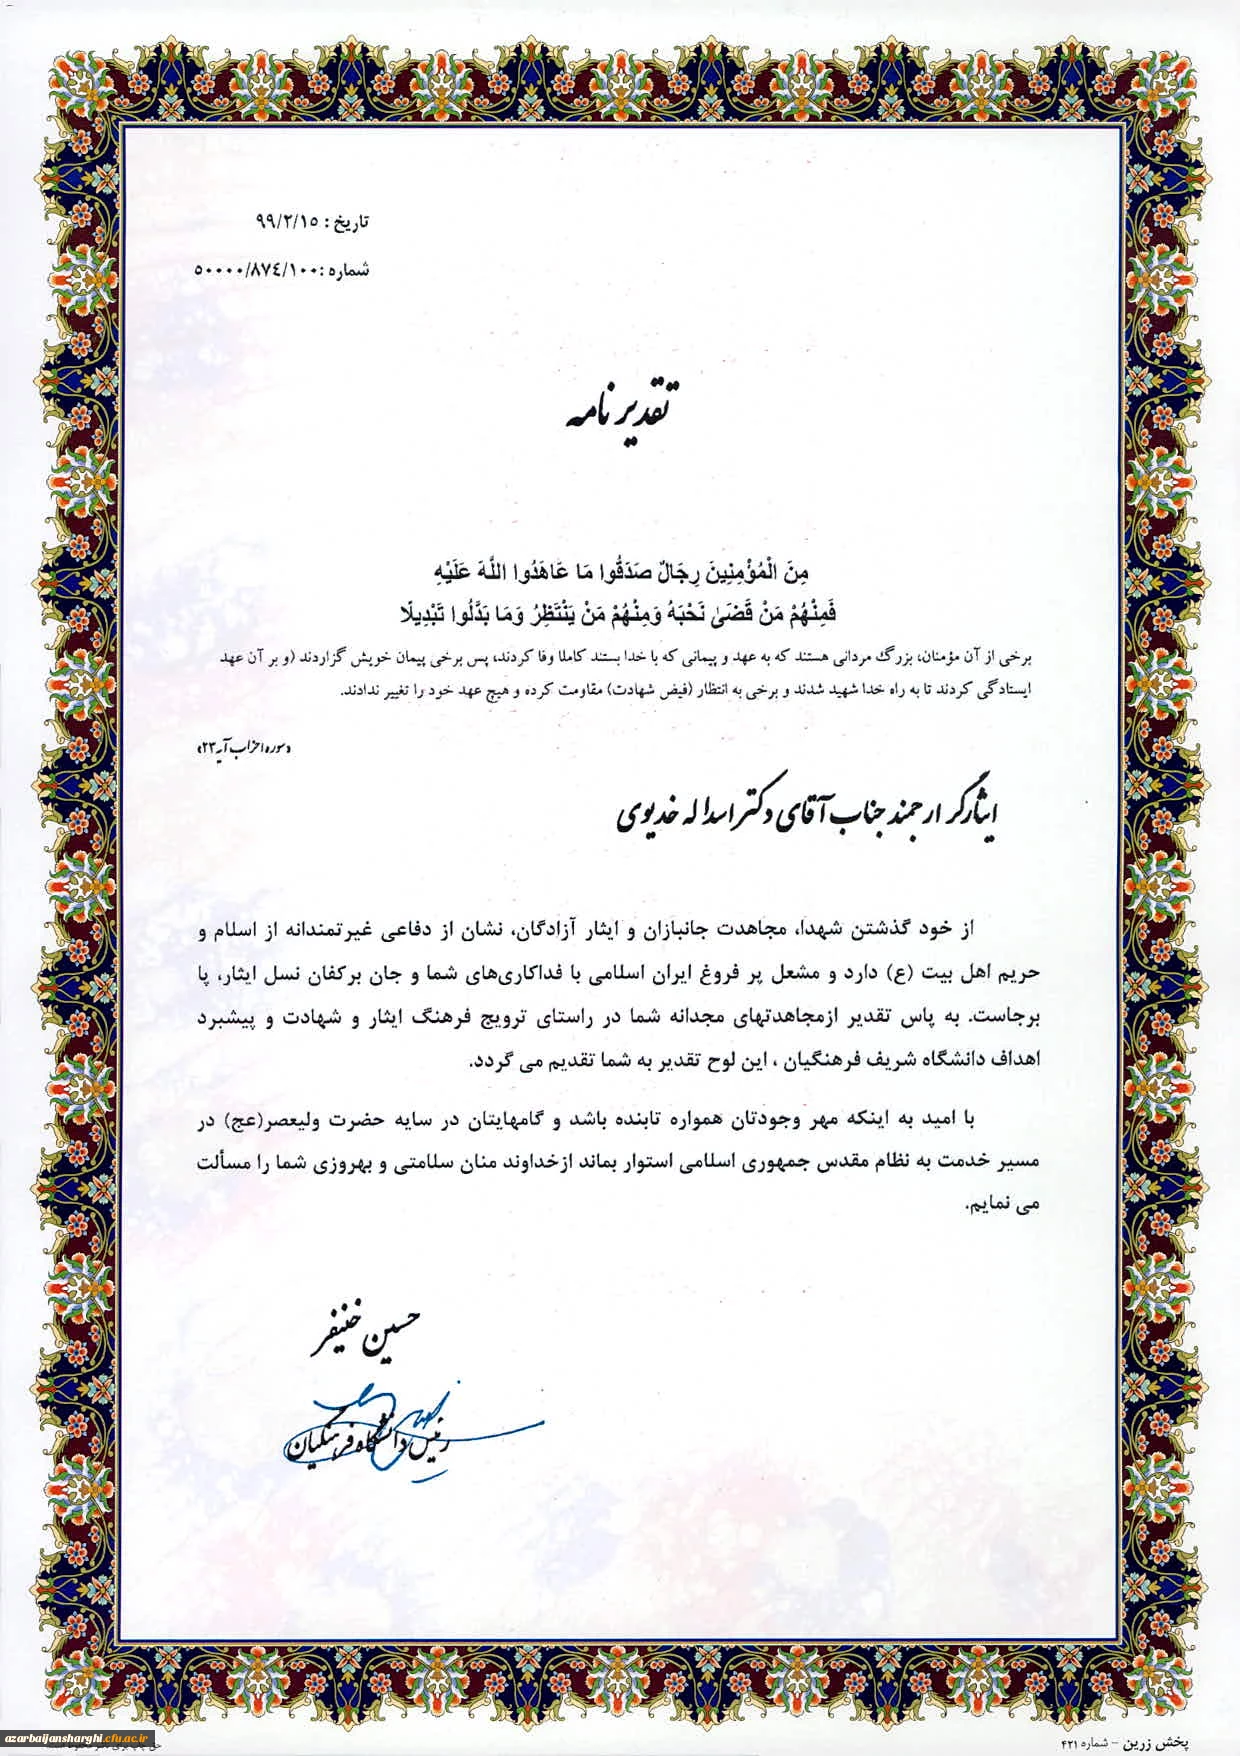 تاریخ : ۹۹/۲/۱۵
شماره :۵۰۰۰۰/۸۷٤/۱۰۰
تقدیر نامه
مِنَ الْمُؤْمِنِينَ رِجَالٌ صَدَقُوا مَا عَاهَدُوا اللَّهَ عَلَيْهِ
فَمِنْهُمْ مَنْ قَضَىٰ نَحْبَهُ وَمِنْهُمْ مَنْ يَنْتَظِرُ وَمَا بَدَّلُوا تَبْدِيلًا
برخی از آن مؤمنان، بزرگ مردانی هستند که به عهد و پیمانی که با خدا بستند کاملا وفا کردند، پس برخی پیمان خویش گزاردند (و بر آن عهد
ایستادگی کردند تا به راه خدا شهید شدند و برخی به انتظار (فیض شهادت) مقاومت کرده و هیچ عهد خود را تغییر ندادند.
«سوره احزاب آیه ۲۳»
ایثارگر ارجمند جناب آقای دکتر اسداله خدیوی
از خود گذشتن شهدا، مجاهدت جانبازان و ایثار آزادگان، نشان از دفاعی غیرتمندانه از اسلام و
حریم اهل بیت (ع) دارد و مشعل پر فروغ ایران اسلامی با فداکاری‌های شما و جان برکفان نسل ایثار، پا
برجاست. به پاس تقدیر ازمجاهدتهای مجدانه شما در راستای ترویج فرهنگ ایثار و شهادت و پیشبرد
اهداف دانشگاه شریف فرهنگیان ، این لوح تقدیر به شما تقدیم می گردد.
با امید به اینکه مهر وجودتان همواره تابنده باشد و گامهایتان در سایه حضرت ولیعصر(عج) در
مسیر خدمت به نظام مقدس جمهوری اسلامی استوار بماند ازخداوند منان سلامتی و بهروزی شما را مسألت
می نمایم.
حسین خنیفر
رئیس دانشگاه فرهنگیان
پخش زرین – شماره ۴۲۱
azarbaijansharghi.cfu.ac.ir